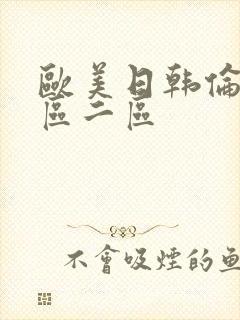 歐美日韩倫
區二區
不會吸煙的魚